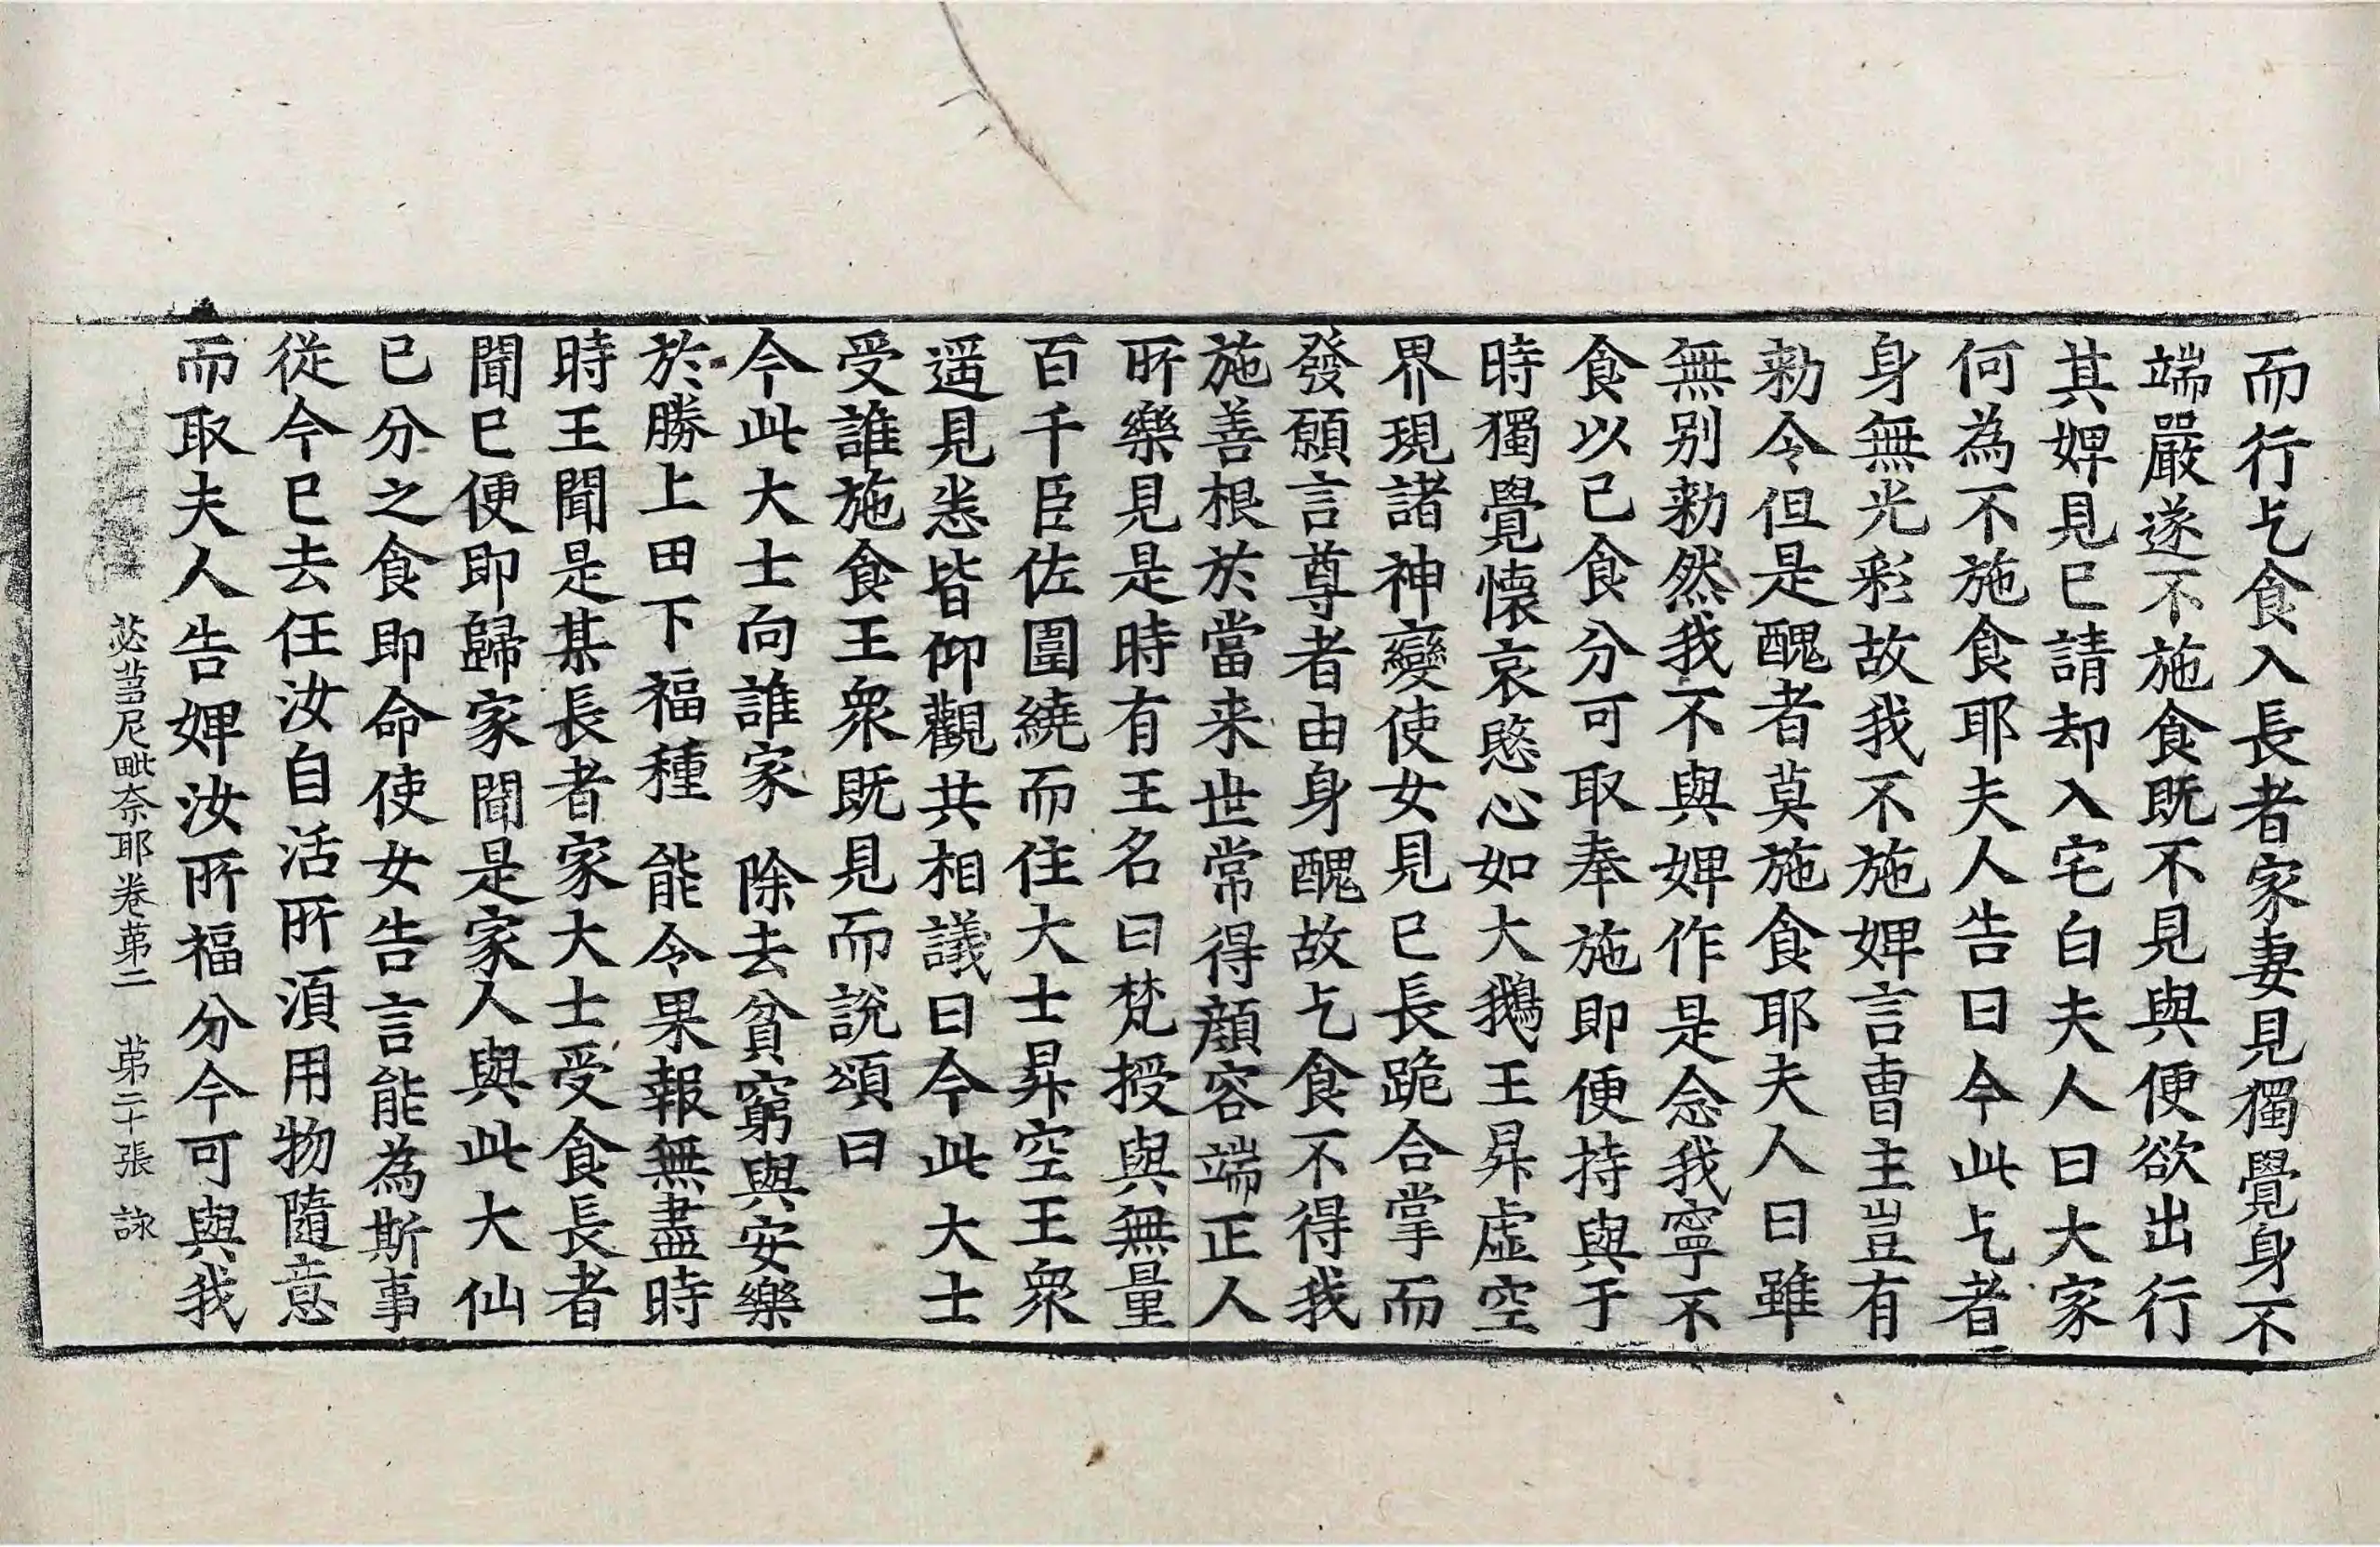 而行乞食入長者家妻見獨覺身不
端嚴遂不施食既不見與便欲出行
其婢見已請却入宅白夫人曰大家
何為不施食耶夫人告曰今此乞者
身無光彩故我不施婢言曺主豈有
勑令但是醜者莫施食耶夫人曰雖
無别勑然我不與婢作是念我寧不
食以已食分可取奉施即便持與于
時獨覺懷哀愍心如大鵝王昇虛空
界現諸神變使女見已長跪合掌而
發願言尊者由身醜故乞食不得我
施善根於當来世常得顔容端正人
所樂見是時有王名曰梵授與無量
百千臣佐圍繞而住大士昇空王衆
遥見悉皆仰觀共相議曰今此大士
受誰施食王衆既見而說頌曰
今此大士向誰家　除去貧窮與安樂
於勝上田下福種　能令果報無盡時
時王聞是某長者家大士受食長者
聞已便即歸家聞是家人與此大仙
已分之食即命使女告言能為斯事
從今已去任汝自活所須用物隨意
而取夫人告婢汝所福分今可與我
苾蒭尼毗奈耶卷苐二　苐二十張　詠